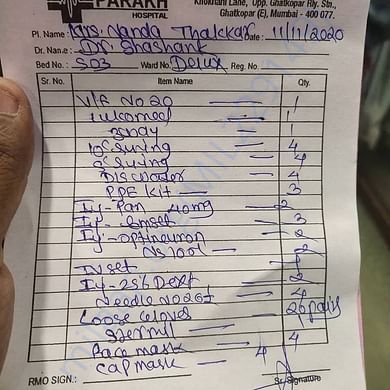 PARAKH
HOSPITAL
Khokhani Lane, Opp. Ghatkopar Rly. Stn.,
Ghatkopar (E), Mumbai - 400 077.
Pt. Name: Mrs. Nanda Thakkar Date: 11/11/2020
Dr. Name: Dr. Shashank
Bed No.: 503 Ward No. Delux Reg. No
Sr. No. Item Name Qty.
V/F No 20 — 1
1
3way 1
10cc Syring — 4
5cc Syring — 4
4
PPE Kit — 3
Inj- Pan 40mg — 2
Inj- Emset — 3
Inj- Optineuron — 2
NS 100ml — 2
IV set — 1
Inj- 25% Dext — 2
Needle No 26 — 4
Loose Gloves — 20 pairs
4
Face mask — 4
Cap mask — 4
RMO SIGN.: Sr. Signature